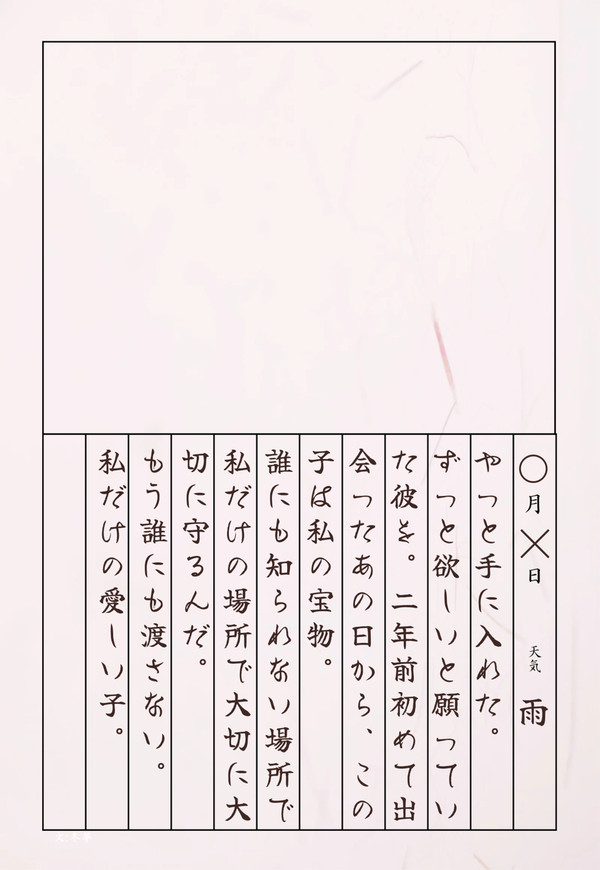 ○月×日 天気 雨
やっと手に入れた。
ずっと欲しいと願ってい
た彼を。二年前初めて出
会ったあの日から、この
子は私の宝物。
誰にも知られない場所で
私だけの場所で大切に大
切に守るんだ。
もう誰にも渡さない。
私だけの愛しい子。